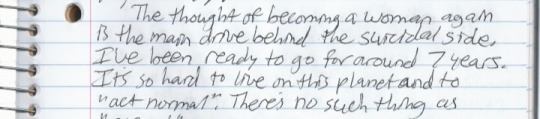 The thought of becoming a woman again
is the main drive behind the suicidal side.
I've been ready to go for around 7 years.
It's so hard to live on this planet and to
"act normal". There's no such thing as